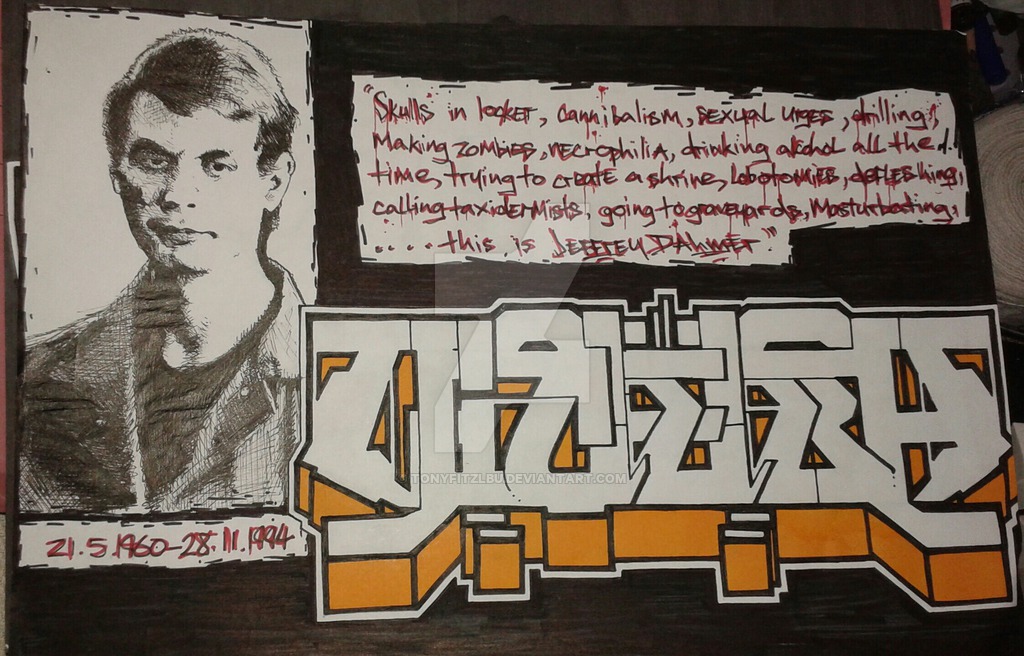 "Skulls in locker, cannibalism, sexual urges, drilling,
Making zombies, necrophilia, drinking alcohol all the
time, trying to create a shrine, lobotomies, defleshing,
calling taxidermists, going to graveyards, Masturbating,
..... this is Jeffrey Dahmer"
TONYFITZLBU.DEVIANTART.COM
21.5.1960-28.11.1994